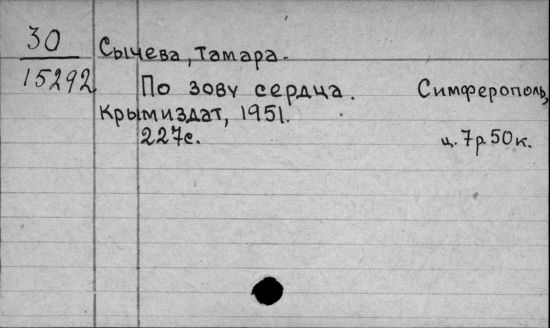 30 Сычева, Тамара.
15292 По зову сердца. Симферополь,
Крымиздат, 1951.
227с. ц. 7р. 50к.